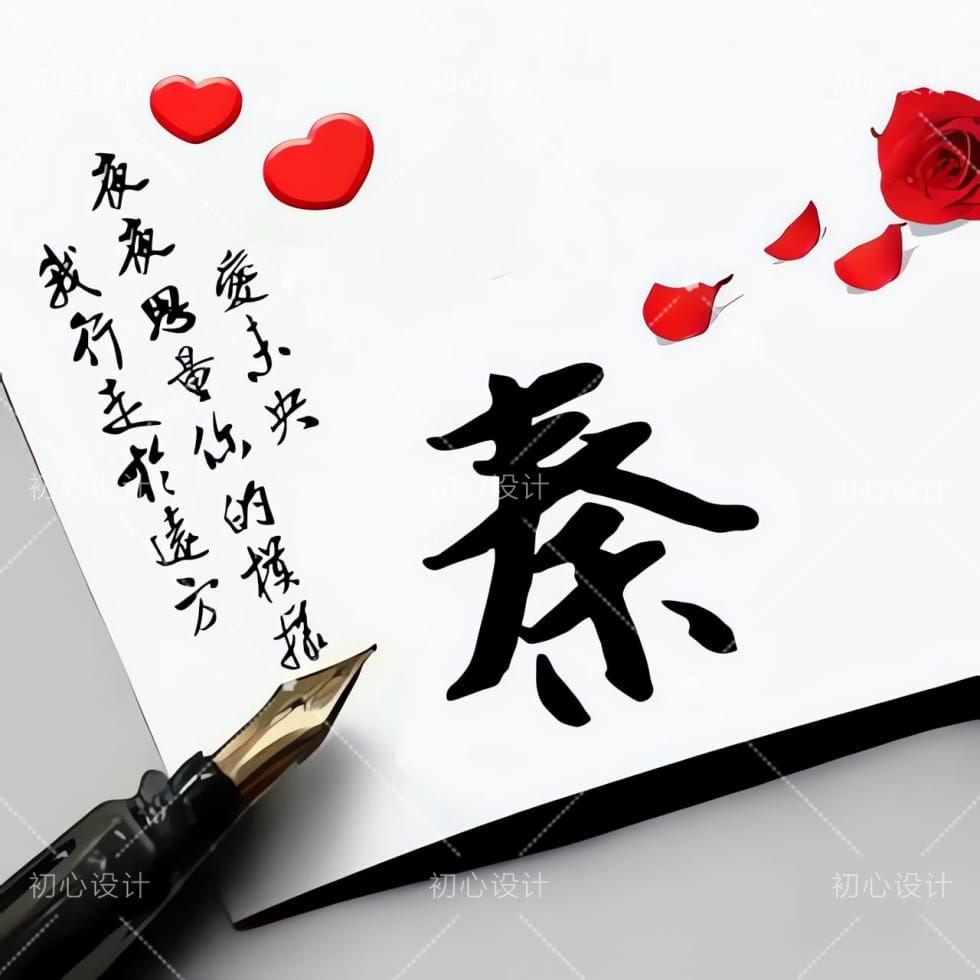 愛未央
夜夜思量你的模樣
我行走於遠方
秦
初心设计
初心设计
初心设计
初心设计
设计
初心设计
初心设计
初心设计